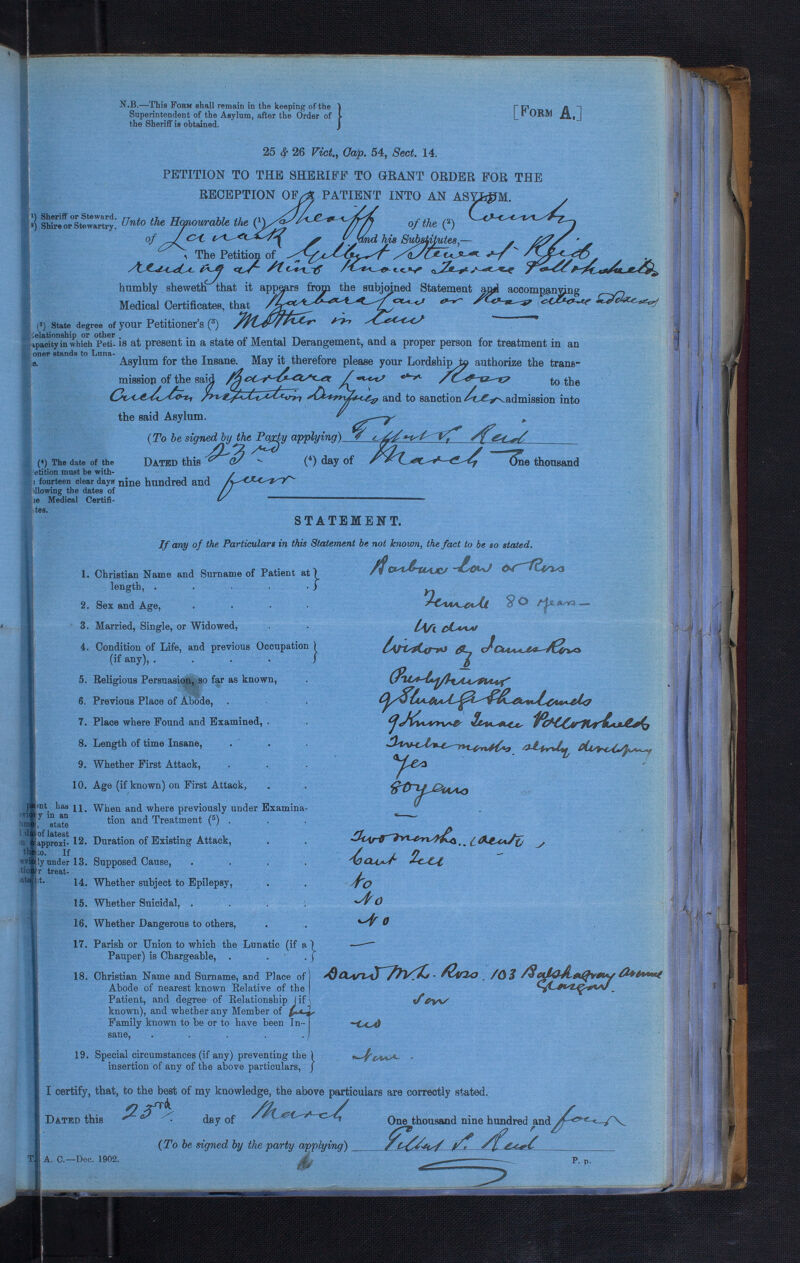 N.B.—This Form shall remain in the keeping of the
Superintendent of the Asylum, after the Order of
the Sheriff is obtained.
[Form A.]
25 & 26 Vict., Cap. 54, Sect. 14.
PETITION TO THE SHERIFF TO GRANT ORDER FOR THE
RECEPTION OF A PATIENT INTO AN ASYLUM.
(¹) Sheriff or Steward.
(²) Shire or Stewartry.
Unto the Honourable the (¹) Sheriff of the (²) County
of Lanark and his Substitutes,—
The Petition of Gilbert Stewart Reid
residing at Nine Knowe Terrace Pollokshields
humbly sheweth that it appears from the subjoined Statement and accompanying
Medical Certificates, that Barbara Law or Ross above address
(³) State degree of
relationship or other
capacity in which Peti-
oner stands to Luna-
your Petitioner's (³) Mother in Law
is at present in a state of Mental Derangement, and a proper person for treatment in an
Asylum for the Insane. May it therefore please your Lordship to authorize the trans-
mission of the said Barbara Law or Ross to the
Crichton Institution Dumfries and to sanction her admission into
the said Asylum.
(To be signed by the Party applying) Gilbert S. Reid
(⁴) The date of the
etition must be with-
fourteen clear days
ollowing the dates of
Medical Certifi-
tes.
Dated this 23rd (⁴) day of March One thousand
nine hundred and four
STATEMENT.
If any of the Particulars in this Statement be not known, the fact to be so stated.
1. Christian Name and Surname of Patient at length, . Barbara Law or Ross
2. Sex and Age, Female 80 years —
3. Married, Single, or Widowed, Widow
4. Condition of Life, and previous Occupation (if any), . Widow of James Ross
5. Religious Persuasion, so far as known, Presbyterian
6. Previous Place of Abode, . 9 Stuart St Shawlands
7. Place where Found and Examined, . 9 Knowe Terrace Pollokshields
8. Length of time Insane, Twelve months slowly developing
9. Whether First Attack, Yes
10. Age (if known) on First Attack, 80 years
11. When and where previously under Examina-
tion and Treatment (⁵) . —
12. Duration of Existing Attack, Two months.. (acute)
13. Supposed Cause, Cant Tell
14. Whether subject to Epilepsy, No
15. Whether Suicidal, . No
16. Whether Dangerous to others, No
17. Parish or Union to which the Lunatic (if a
Pauper) is Chargeable, . —
18. Christian Name and Surname, and Place of David McL. Ross. 103 Balshagray Avenue
Abode of nearest known Relative of the Glasgow.
Patient, and degree of Relationship (if Son
known), and whether any Member of her
Family known to be or to have been In- no
sane,
19. Special circumstances (if any) preventing the None.
insertion of any of the above particulars,
I certify, that, to the best of my knowledge, the above particulars are correctly stated.
Dated this 23rd. day of March One thousand nine hundred and four
(To be signed by the party applying) Gilbert S. Reid
A. C.—Dec. 1902.
P. p.